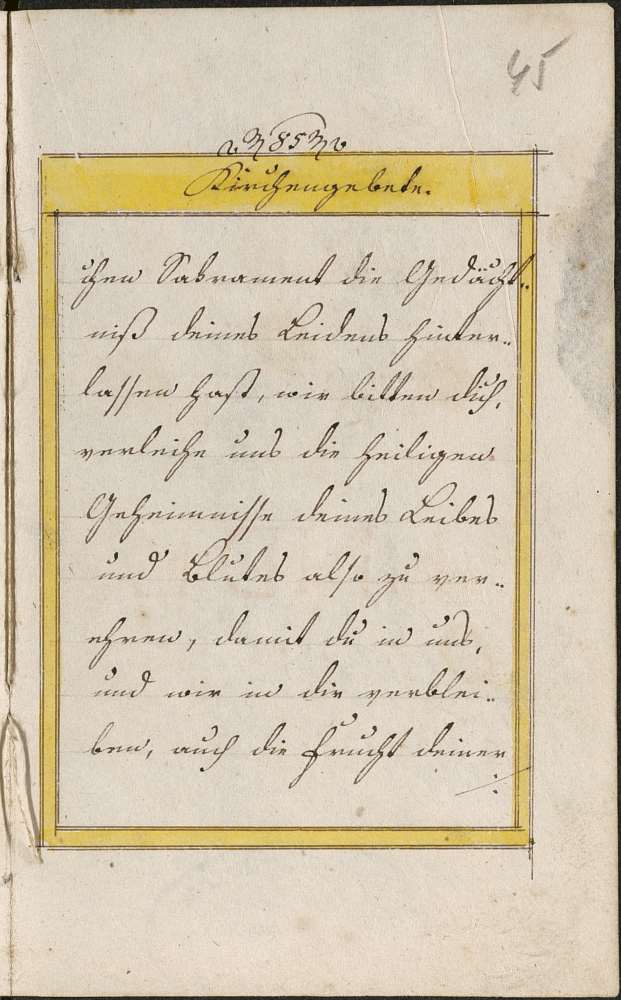 45
85
Kirchengebete.
chen Sakrament die Gedächt„
niß deines Leidens hinter„
lassen hast, wir bitten dich,
verleihe uns die heiligen
Geheimnisse deines Leibes
und Blutes also zu ver„
ehren, damit du in uns,
und wir in dir verblei„
ben, auch die Frucht deiner